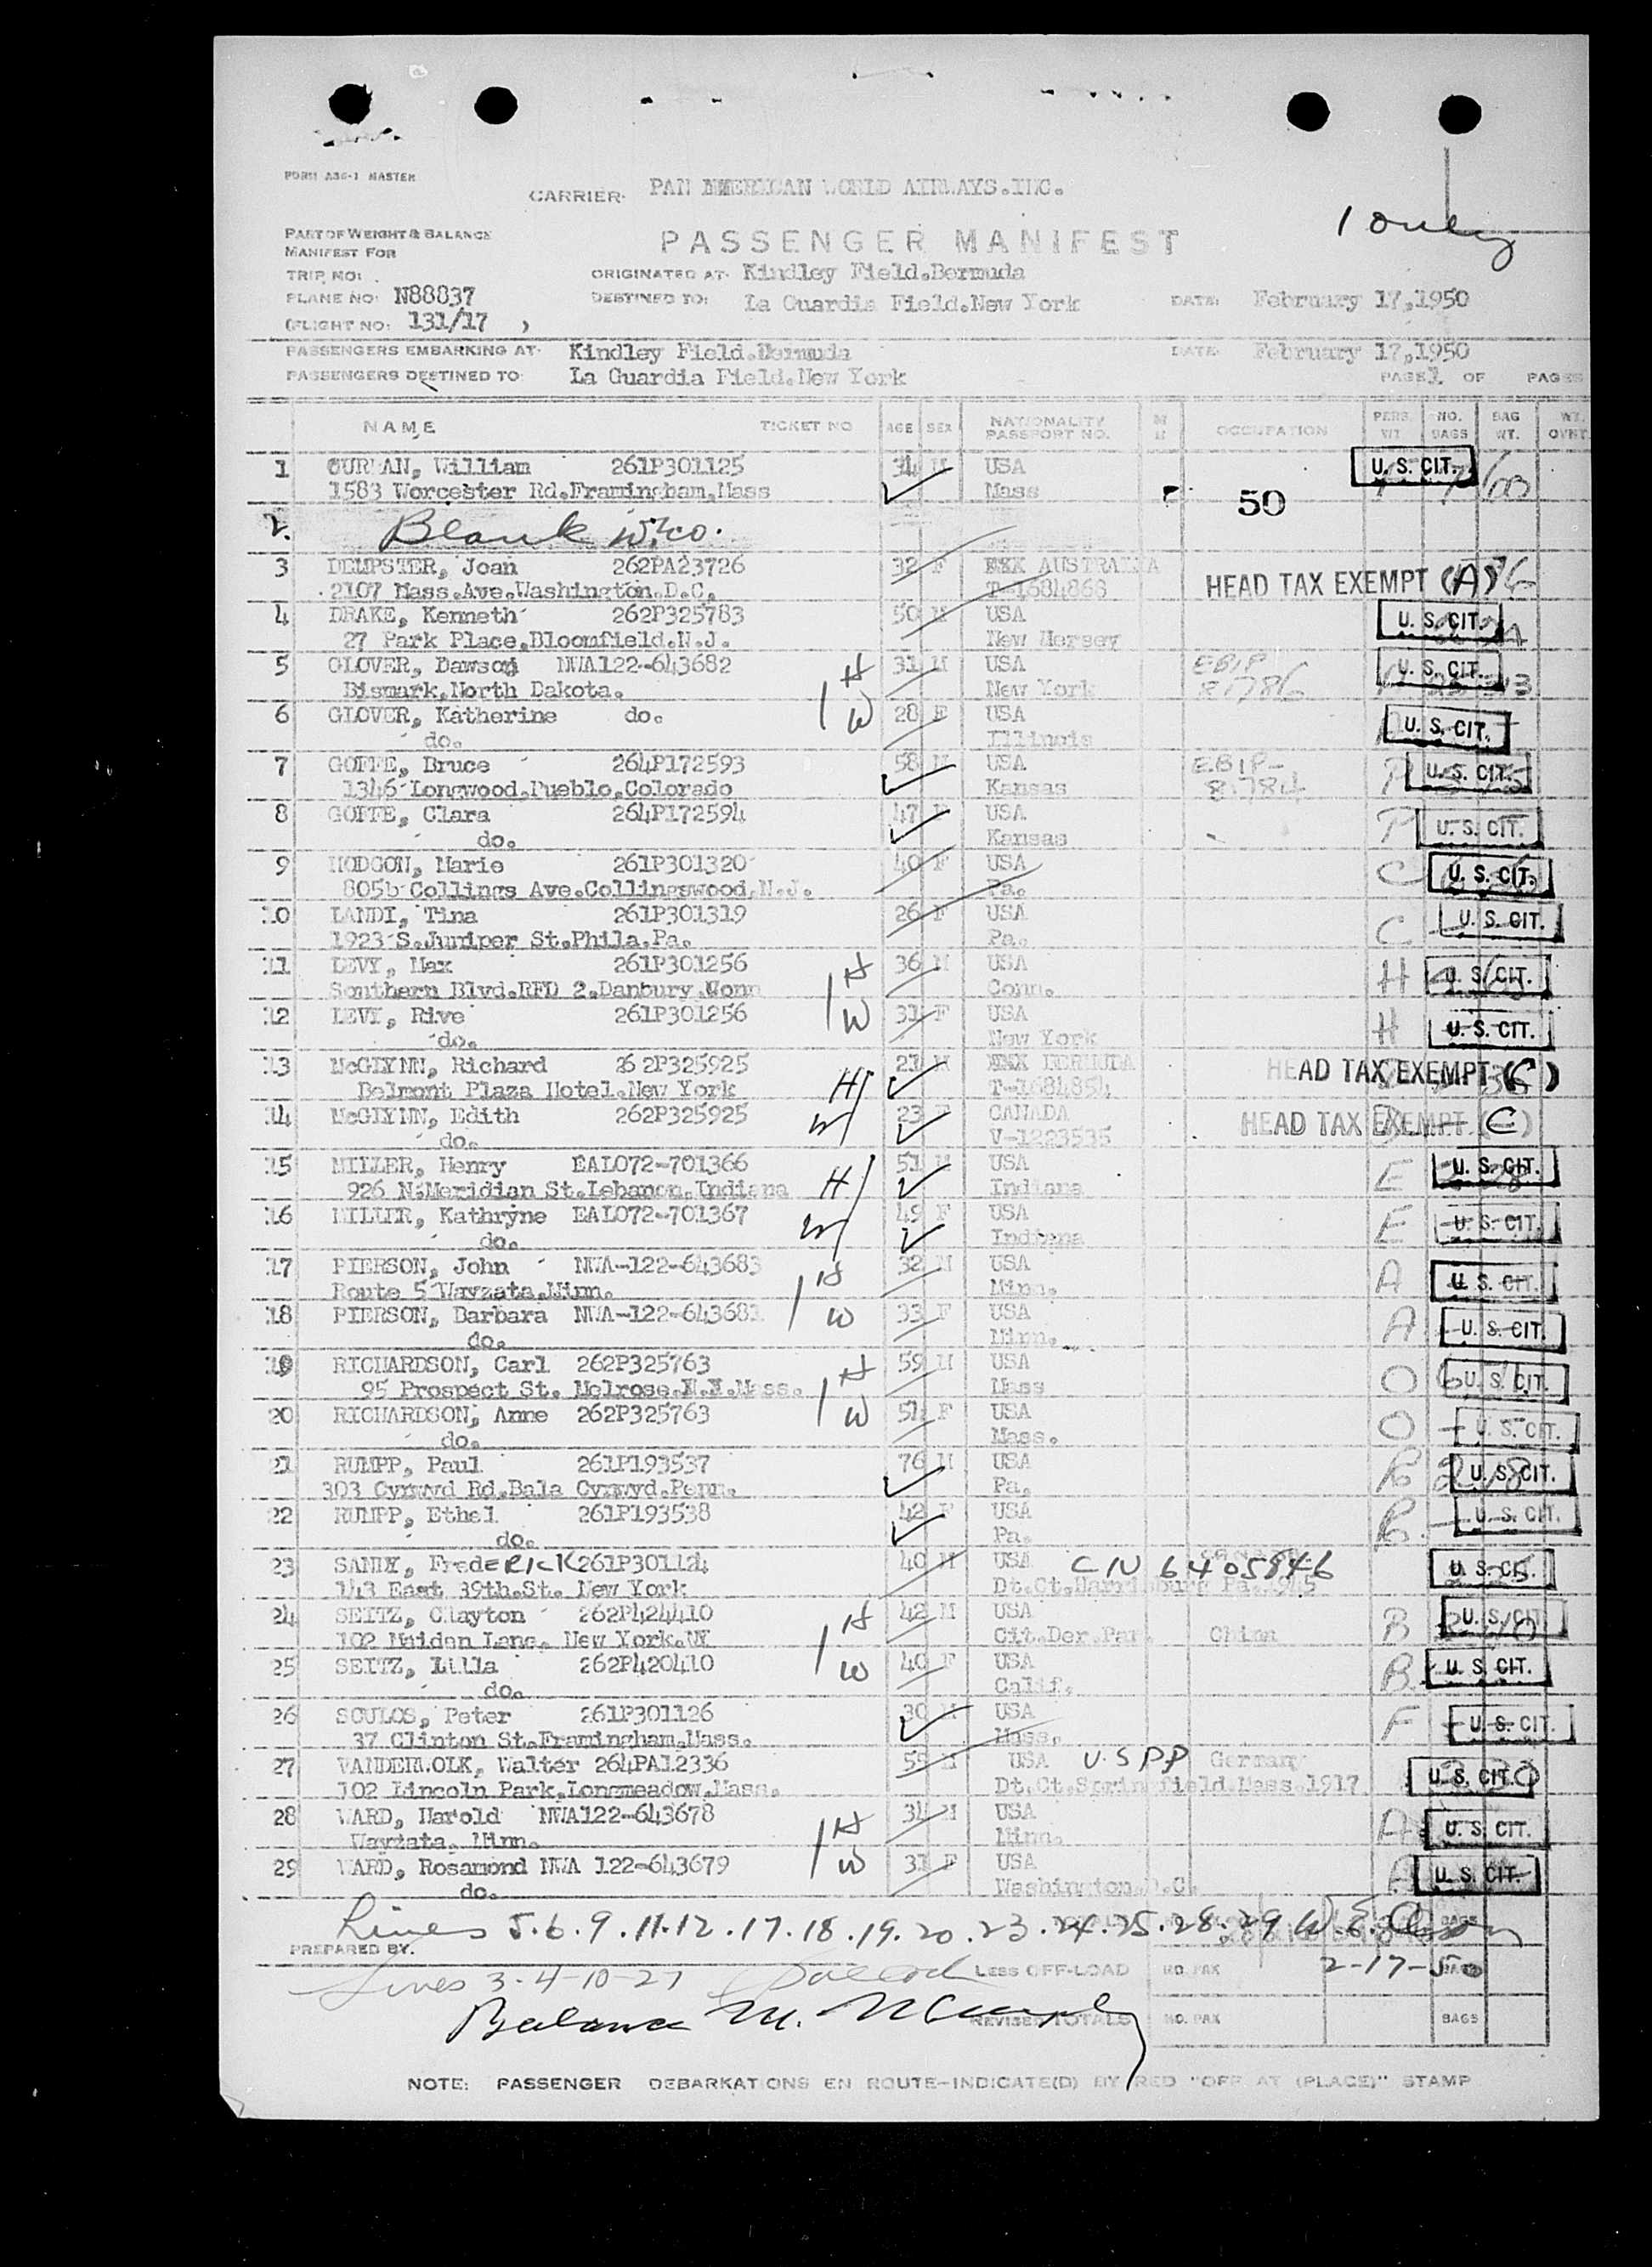 FORM A36-1 MASTER
CARRIER: PAN AMERICAN WORLD AIRWAYS.INC.
1 only
PART OF WEIGHT & BALANCE
MANIFEST FOR
PASSENGER MANIFEST
TRIP NO:
ORIGINATED AT: Kindley Field.Bermuda
PLANE NO: N88837
DESTINED TO: La Guardia Field.New York DATE: February 17,1950
(FLIGHT NO: 131/17 )
PASSENGERS EMBARKING AT: Kindley Field.Bermuda DATE: February 17,1950
PASSENGERS DESTINED TO: La Guardia Field.New York PAGE 1 OF PAGES
NAME TICKET NO AGE SEX NATIONALITY PASSPORT NO. OCCUPATION PERS. WT NO. BAGS BAG WT. WT. OVWT.
1 William 261P301125 34 M USA U. S. CIT.
1583 Worcester Rd.Framingham,Mass Mass 50
2. Blank
3 DEMPSTER, Joan 262PA23726 32 F AUSTRALIA HEAD TAX EXEMPT (A)
2107 Mass.Ave.Washington.D.C. T-1684868
4 DRAKE, Kenneth 262P325783 50 M USA U. S. CIT.
27 Park Place,Bloomfield.N.J. New Jersey
5 GLOVER, Dawson NWA122-643682 H 31 M USA EBIP U. S. CIT.
Bismark,North Dakota. New York 81786
6 GLOVER, Katherine do. W 28 F USA U. S. CIT.
do. Illinois
7 GOFFE, Bruce 264P172593 58 M USA EBIP- P U. S. CIT.
1346 Longwood,Pueblo,Colorado Kansas 81784
8 GOFFE, Clara 264P172594 47 F USA P U. S. CIT.
do. Kansas
9 HODGON, Marie 261P301320 40 F USA C U. S. CIT.
805b Collings Ave.Collingswood,N.J. Pa.
10 LANDI, Tina 261P301319 26 F USA C U. S. CIT.
1923 S.Juniper St.Phila.Pa. Pa.
11 LEVY, Max 261P301256 H 36 M USA H U. S. CIT.
Southern Blvd.RFD 2.Danbury.Conn Conn.
12 LEVY, Rive 261P301256 W 31 F USA H U. S. CIT.
do. New York
13 McGLYNN, Richard 262P325925 21 M BERMUDA HEAD TAX EXEMPT (C)
Belmont Plaza Hotel.New York H T-1684854
14 McGLYNN, Edith 262P325925 W 23 F CANADA HEAD TAX EXEMPT (C)
do. V-1223535
15 MILLER, Henry EAL072-701366 51 M USA E U. S. CIT.
926 N.Meridian St.Lebanon.Indiana H Indiana
16 MILLER, Kathryne EAL072-701367 W 49 F USA E U. S. CIT.
do. Indiana
17 PIERSON, John NWA-122-643683 H 32 M USA A U. S. CIT.
Route 5 Wayzata.Minn. Minn.
18 PIERSON, Barbara NWA-122-643681 W 33 F USA A U. S. CIT.
do. Minn.
19 RICHARDSON, Carl 262P325763 H 59 M USA O U. S. CIT.
95 Prospect St. Melrose.X.X.Mass. Mass
20 RICHARDSON, Anne 262P325763 W 51 F USA O U. S. CIT.
do. Mass.
21 RUMPP, Paul 261P193537 76 M USA R U. S. CIT.
303 Cynwyd Rd.Bala Cynwyd.Penn. Pa.
22 RUMPP, Ethel 261P193538 42 F USA R U. S. CIT.
do. Pa.
23 FredeRICK 261P301124 40 M USA CIN 6405846 U. S. CIT.
143 East 39th.St. New York Dt.Ct.Harrisburg Pa.1945
24 SEITZ, Clayton 262P424410 H 42 M USA B U. S. CIT.
102 Maiden Lane. New York.NY Cit.Der.Par. China
25 SEITZ, Lilla 262P420410 W 40 F USA B U. S. CIT.
do. Calif.
26 SOULOS, Peter 261P301126 30 M USA F U. S. CIT.
37 Clinton St.Framingham.Mass. Mass.
27 Walter 264PA12336 55 M USA U S PP Germany U. S. CIT.
102 Lincoln Park,Longmeadow.Mass. Dt.Ct.Springfield.Mass.1917
28 WARD, Harold NWA122-643678 H 34 M USA A U. S. CIT.
Wayzata. Minn. Minn.
29 WARD, Rosamond NWA 122-643679 W 31 F USA A U. S. CIT.
do. Washington.D.C.
Lines 5.6.9.11.12.17.18.19.20.23.24.25.28.29 W.E. BAGS
PREPARED BY.
Lines 3-4-10-27 LESS OFF-LOAD NO. PAX 2-17-50
Balance M. REVISED TOTALS NO. PAX BAGS
NOTE: PASSENGER DEBARKATIONS EN ROUTE-INDICATE(D) BY RED "OFF AT (PLACE)" STAMP